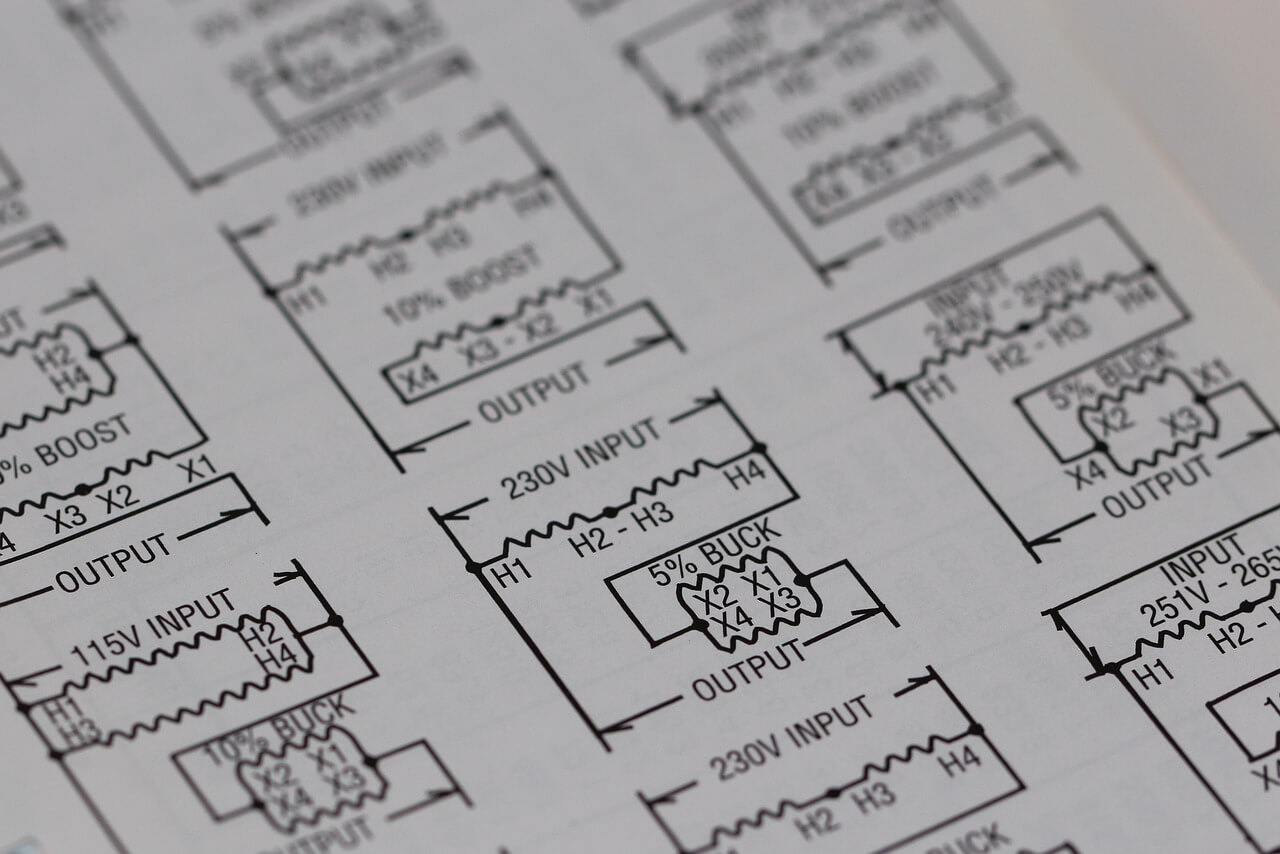 OUTPUT
230V INPUT
H1
H2 H3
H4
10% BOOST
X4 X3 - X2 X1
OUTPUT
H1
10% BOOST
OUTPUT
INPUT
240V - 250V
H1 H2 - H3 H4
5% BUCK
X2 X1
X4 X3
OUTPUT
H2
H4
% BOOST
X3 X2 X1
OUTPUT
230V INPUT
H1 H2 - H3 H4
5% BUCK
X2 X1
X4 X3
OUTPUT
INPUT
251V - 265V
H1 H2 -
115V INPUT
H1 H2
H3 H4
10% BUCK
X2 X1
X4 X3
OUTPUT
230V INPUT
H2 H3 H4
BUCK